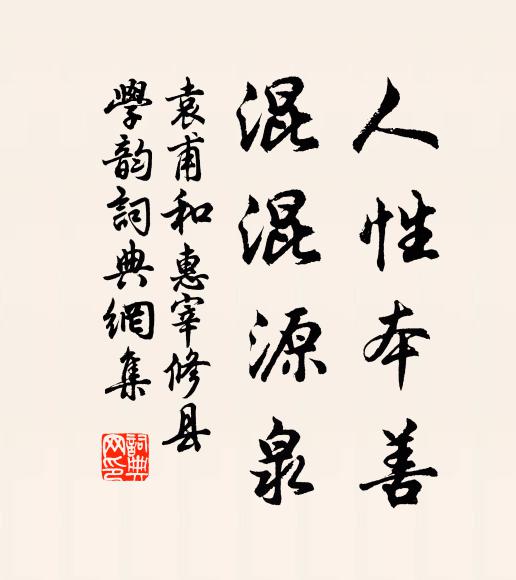 人性本善
混混源泉
袁甫和惠宰修县
學韵詞典網集
詞典网印